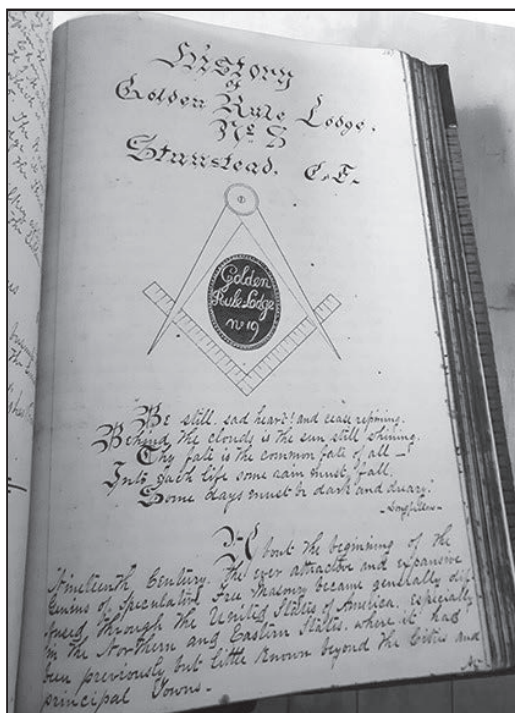 History
of
Golden Rule Lodge.
No 8
Stanstead. C.E.
Golden
Rule Lodge
No 19
Be still, sad heart! and cease repining.
Behind the clouds is the sun still shining.
Thy fate is the common fate of all—
Into each life some rain must fall.
Some days must be dark and dreary."
About the beginning of the
Nineteenth Century, the ever attractive and expansive
Genius of Speculative Free Masonry became generally dif-
fused through the United States of America, especially
in the Northern and Eastern States, where it had
been previously but little known beyond the Cities and
principal Towns—